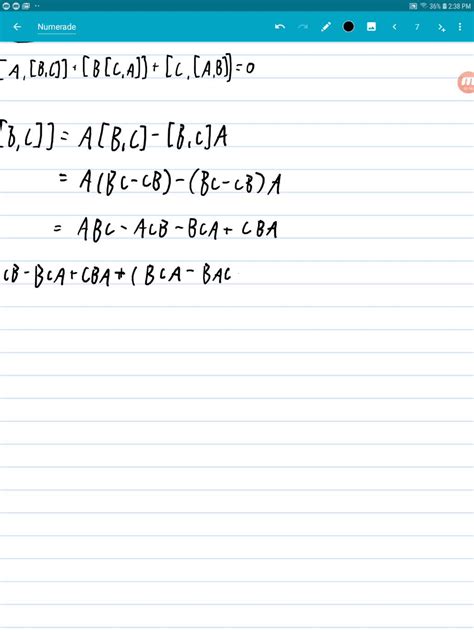 36% 2:38 PM
Numerade 7
[A,[B,C]]+[B[C,A]]+[C,[A,B]]=0
[B,C]]=A[B,C]-[B,C]A
=A(BC-CB)-(BC-CB)A
=ABC-ACB-BCA+CBA
CB-BCA+CBA+(BCA-BAC